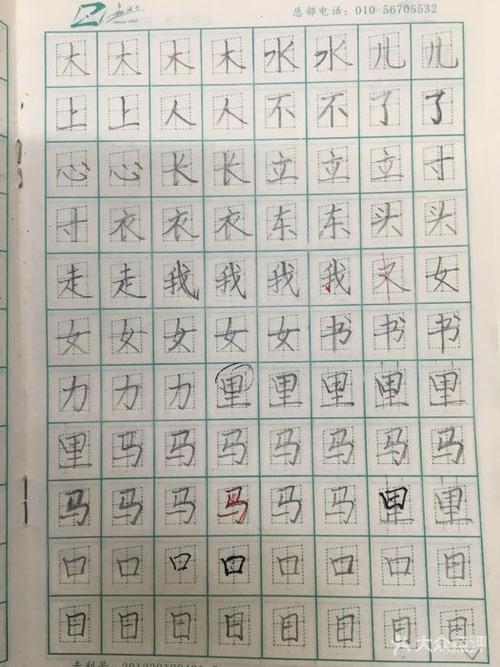 总部电话：010-56705532
大大木木水水儿儿
上上人人不不了了
心心长长立立立寸
寸衣衣衣东东头头
走走我我我我又女
女女女女女书书书
力力力里里里里里
里马马马马马马马
马马马马马马里里
口口口口口口口日
目目目目目目目目
大众点评